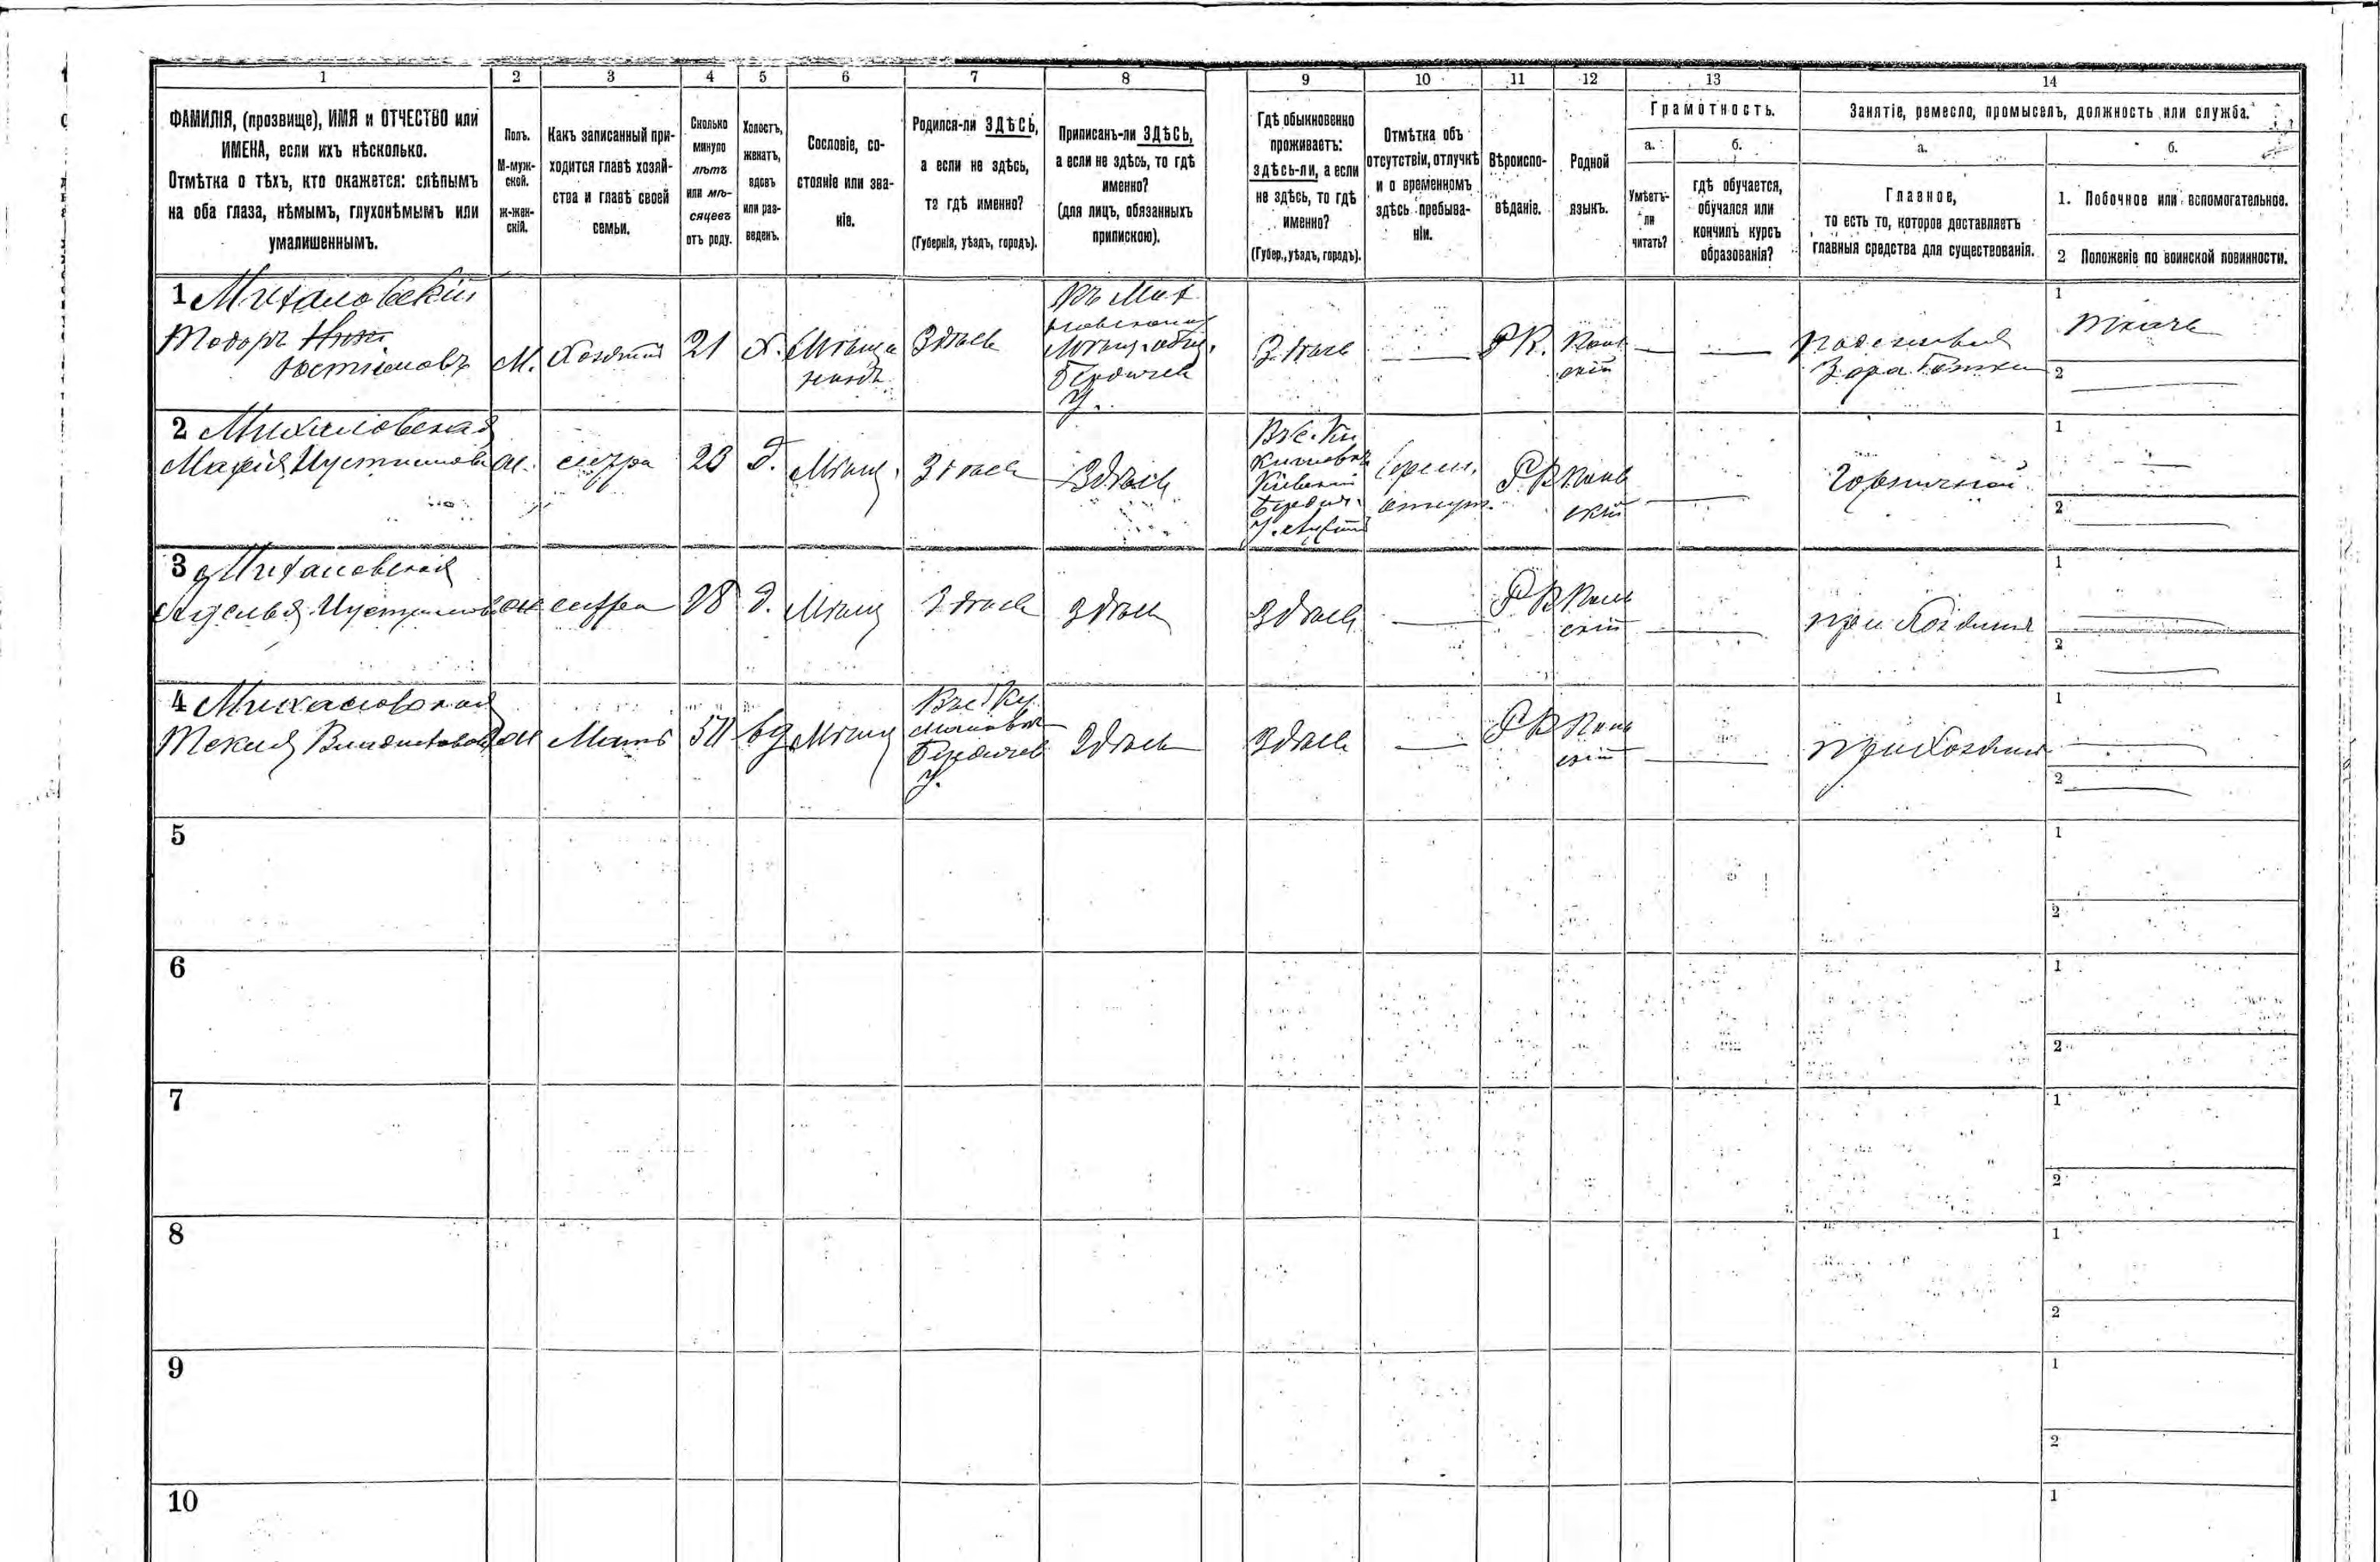 1 2 3 4 5 6 7 8 9 10 11 12 13 14
ФАМИЛІЯ, (прозвище), ИМЯ и ОТЧЕСТВО или
ИМЕНА, если ихъ нѣсколько.
Отмѣтка о тѣхъ, кто окажется: слѣпымъ
на оба глаза, нѣмымъ, глухонѣмымъ или
умалишеннымъ.
Полъ.
М-муж-
ской.
Ж-жен-
скій.
Какъ записанный при-
ходится главѣ хозяй-
ства и главѣ своей
семьи.
Сколько
минуло
лѣтъ
или мѣ-
сяцевъ
отъ роду.
Холостъ,
женатъ,
вдовъ
или раз-
веденъ.
Сословіе, со-
стояніе или зва-
ніе.
Родился-ли ЗДѢСЬ,
а если не здѣсь,
то гдѣ именно?
(Губернія, уѣздъ, городъ).
Приписанъ-ли ЗДѢСЬ,
а если не здѣсь, то гдѣ
именно?
(для лицъ, обязанныхъ
припискою).
Гдѣ обыкновенно
проживаетъ:
здѣсь-ли, а если
не здѣсь, то гдѣ
именно?
(Губер., уѣздъ, городъ).
Отмѣтка объ
отсутствіи, отлучкѣ
и о временномъ
здѣсь пребыва-
ніи.
Вѣроиспо-
вѣданіе.
Родной
языкъ.
Грамотность.
а.
Умѣетъ-
ли
читать?
б.
гдѣ обучается,
обучался или
кончилъ курсъ
образованія?
Занятіе, ремесло, промыселъ, должность или служба.
а.
Главное,
то есть то, которое доставляетъ
главныя средства для существованія.
б.
1. Побочное или вспомогательное.
2 Положеніе по воинской повинности.
1 Михаловскій
Тодоръ
Юстиновъ
М.
Хозяинъ
21
Х.
Мѣща
нинъ
Здѣсь
Мѣщ. общ.
Бердичев
У.
Здѣсь
Р К.
Поль
скій
Поденныя
Заработки
1
Ткачъ
2
2 Михаловская
Марія Иустинова
ж.
сестра
23
д.
Мѣщ.
Здѣсь
Здѣсь
Бердич.
Врем.
отсут.
Р К
Поль
скій
Горничной
1
2
3 Михаловская
Иустинова
ж
сестра
28
д.
Мѣщ
Здѣсь
Здѣсь
Здѣсь
Р К
Поль
скій
при хозяинѣ
1
2
4 Михаловская
Текля
ж
Мать
вд
Мѣщ
Бердичев
У.
Здѣсь
Здѣсь
Р К
Поль
скій
при хозяинѣ
1
2
5
1
2
6
1
2
7
1
2
8
1
2
9
1
2
10
1